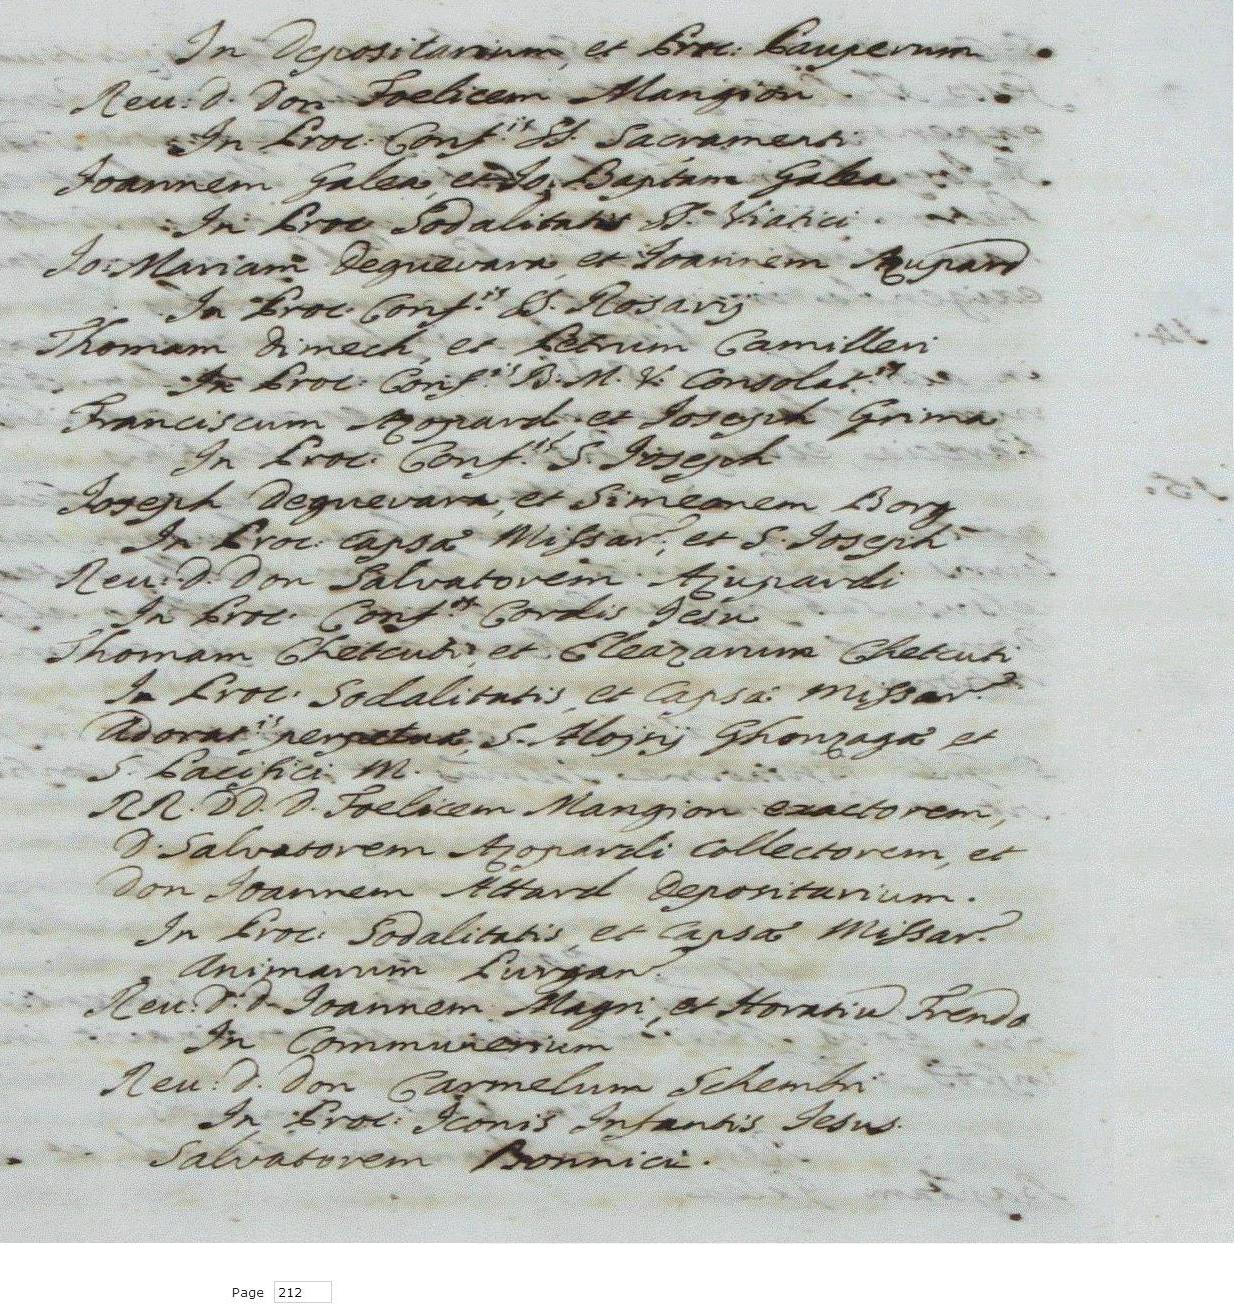 In Depositarium, et Proc: Pauperum
Reu: d. Don Foelicem Mangion
In Proc: Conf:is SS. Sacramenti
Joannem Galea, et Jo: Baptam Galea
In Proc Sodalitatis SS. Viatici
Jo: Mariam Deguevara, et Joannem Azupard
In Proc: Conf:is SS. Rosarij
Thomam Dimech, et Petrum Camilleri
In Proc: Conf:is B. M. V. Consolat:is
Franciscum Azopard et Joseph Grima
In Proc: Conf:is S. Joseph
Joseph Deguevara, et Simeonem Borg
In Proc: Capsæ Missar:, et S. Joseph
Reu: D: Don Salvatorem Azupardi
In Proc: Conf:is Cordis Jesu
Thomam Chetcuti, et Eleazarum Chetcuti
In Proc: Sodalitatis, et Capsæ Missar:
Adorat:is perpetuæ, S. Aloisij Ghonzagæ et
S. Pacifici M.
RR. DD. D. Foelicem Mangion exactorem,
D. Salvatorem Azopardi Collectorem, et
Don Joannem Attard Depositarium.
In Proc: Sodalitatis, et Capsæ Missar:
Animarum Purgan:
Reu: D: d. Joannem Magri, et Horatiu Frendo
In Communerium
Reu: d. Don Carmelum Schembri
In Proc: Iconis Infantis Jesus.
Salvatorem Bonnici.
14.
15.
Page 212